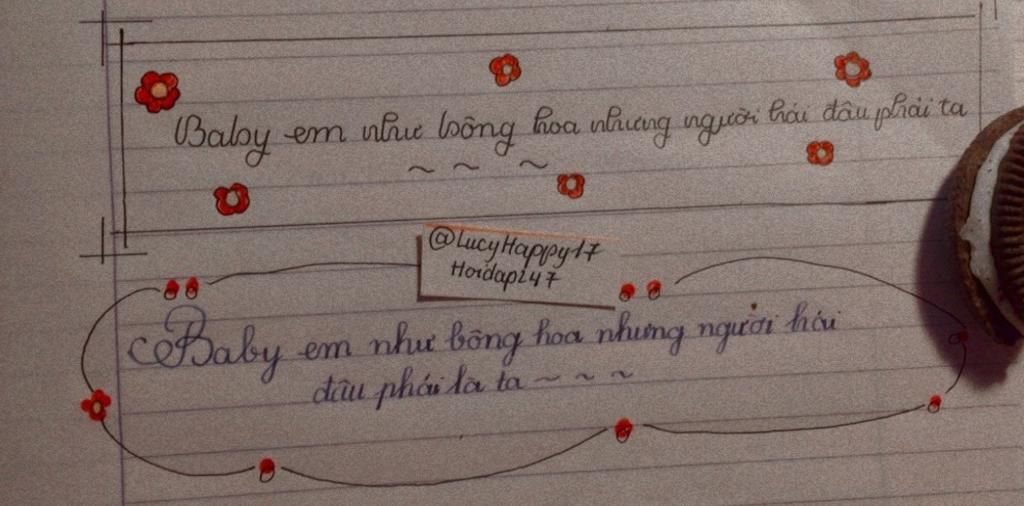 Baby em như bông hoa nhưng người hái đâu phải ta
~ ~ ~
@LucyHappy17
Hoidap247
Baby em như bông hoa nhưng người hái
đâu phải là ta ~ ~ ~